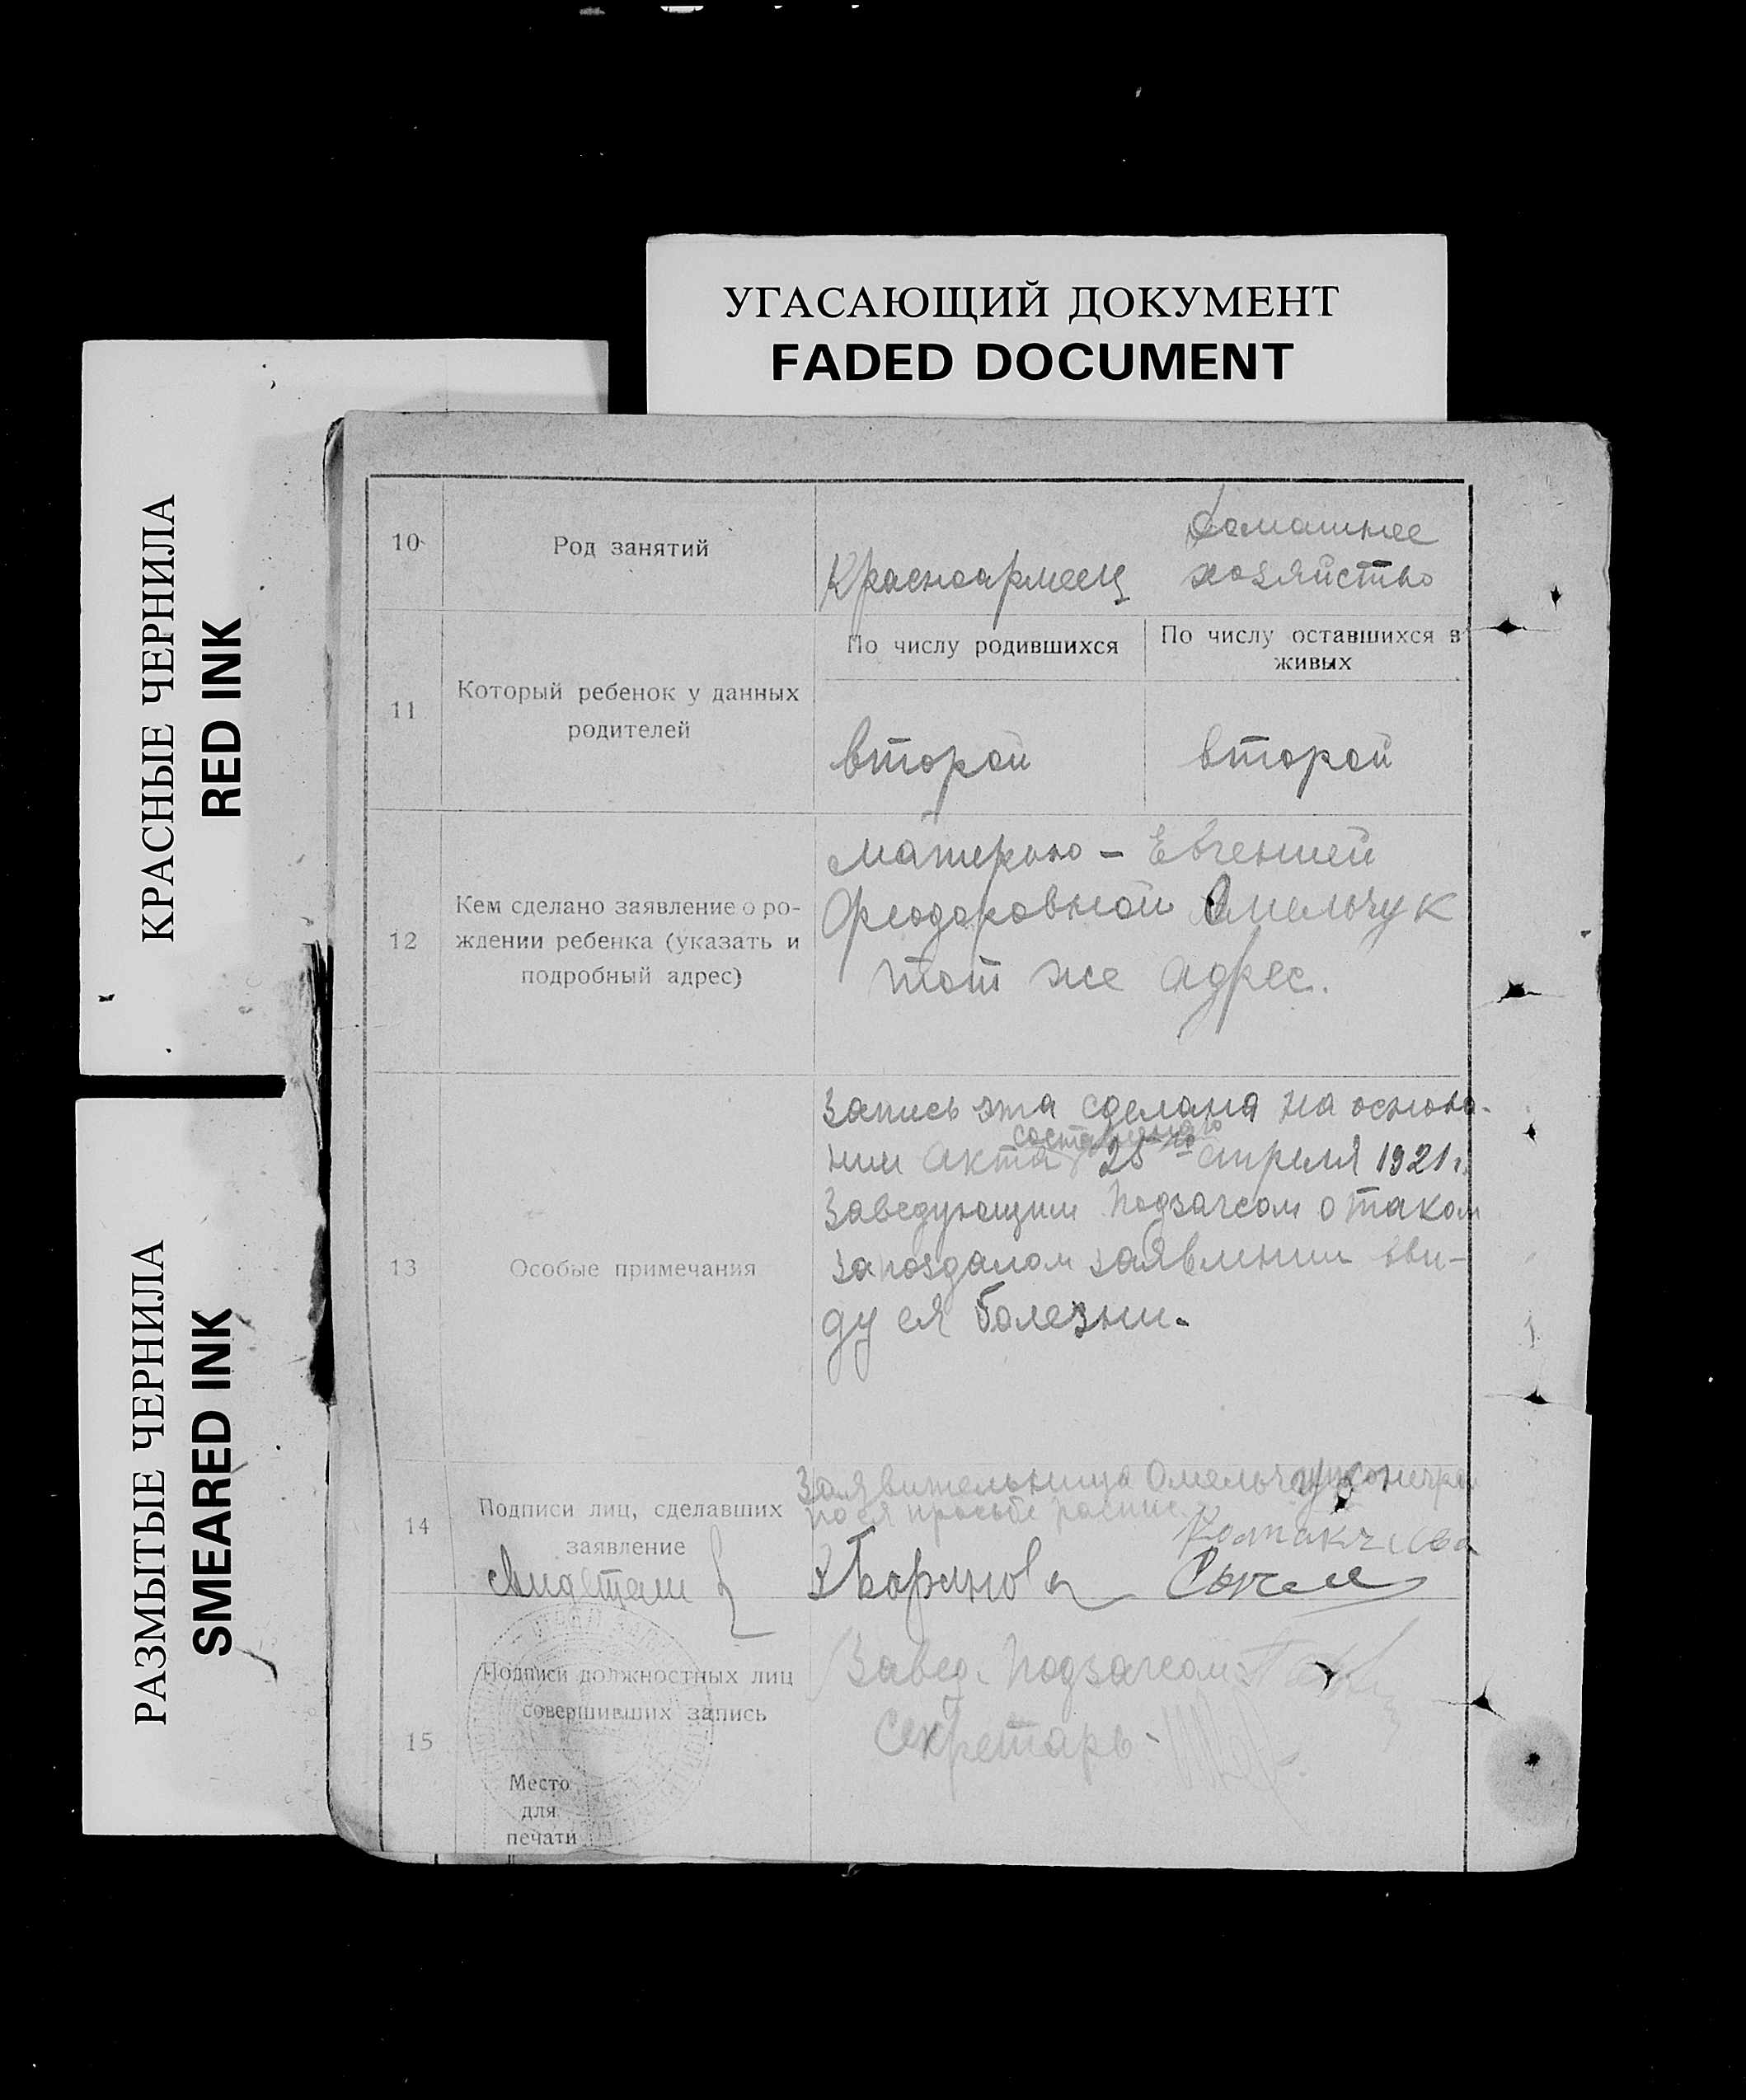 УГАСАЮЩИЙ ДОКУМЕНТ
FADED DOCUMENT
КРАСНЫЕ ЧЕРНИЛА
RED INK
РАЗМЫТЫЕ ЧЕРНИЛА
SMEARED INK
10
Род занятий
Красноармеец
домашнее
хозяйство
11
Который ребенок у данных
родителей
По числу родившихся
По числу оставшихся в
живых
второй
второй
12
Кем сделано заявление о ро-
ждении ребенка (указать и
подробный адрес)
Матерью – Евгенией
Феодоровной Омельчук
тот же адрес.
13
Особые примечания
Запись эта сделана на основа-
нии акта составленного 25го апреля 1921г.
Заведующим Подзагсом о таком
запоздалом заявлении вви-
ду ея болезни.
14
Подписи лиц, сделавших
заявление
Заявительница Омельчук
по ея просьбе
15
Подписи должностных лиц
совершивших запись
Место
для
печати
Завед. Подзагсом
Секретарь